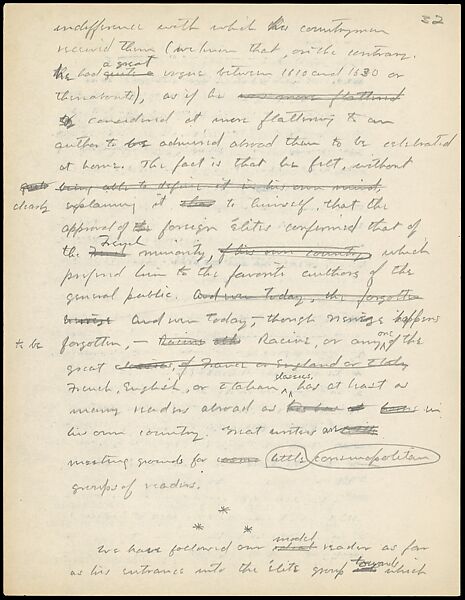 32
indifference with which his countrymen
received them (we know that, on the contrary,
he had quite a a great vogue between 1610 and 1630 or
thereabouts), as if he was more flattered
considered it more flattering to an
author to be admired abroad than to be celebrated
at home. The fact is that he felt, without
being able to define it in his own mind,
clearly explaining it to himself, that the
approval of the foreign élites confirmed that of
the French minority, of his own country, which
preferred him to the favorite authors of the
general public. And even today, the forgotten
And even today, — though happens
to be forgotten, — Racine Racine, or any one of the
great classics, of France or England or Italy
French, English, or Italian classics, has at least as
many readers abroad as in
his own country. Great writers are
meeting grounds for little cosmopolitan
groups of readers.
* * *
We have followed our model reader as far
as his entrance into the élite group towards which